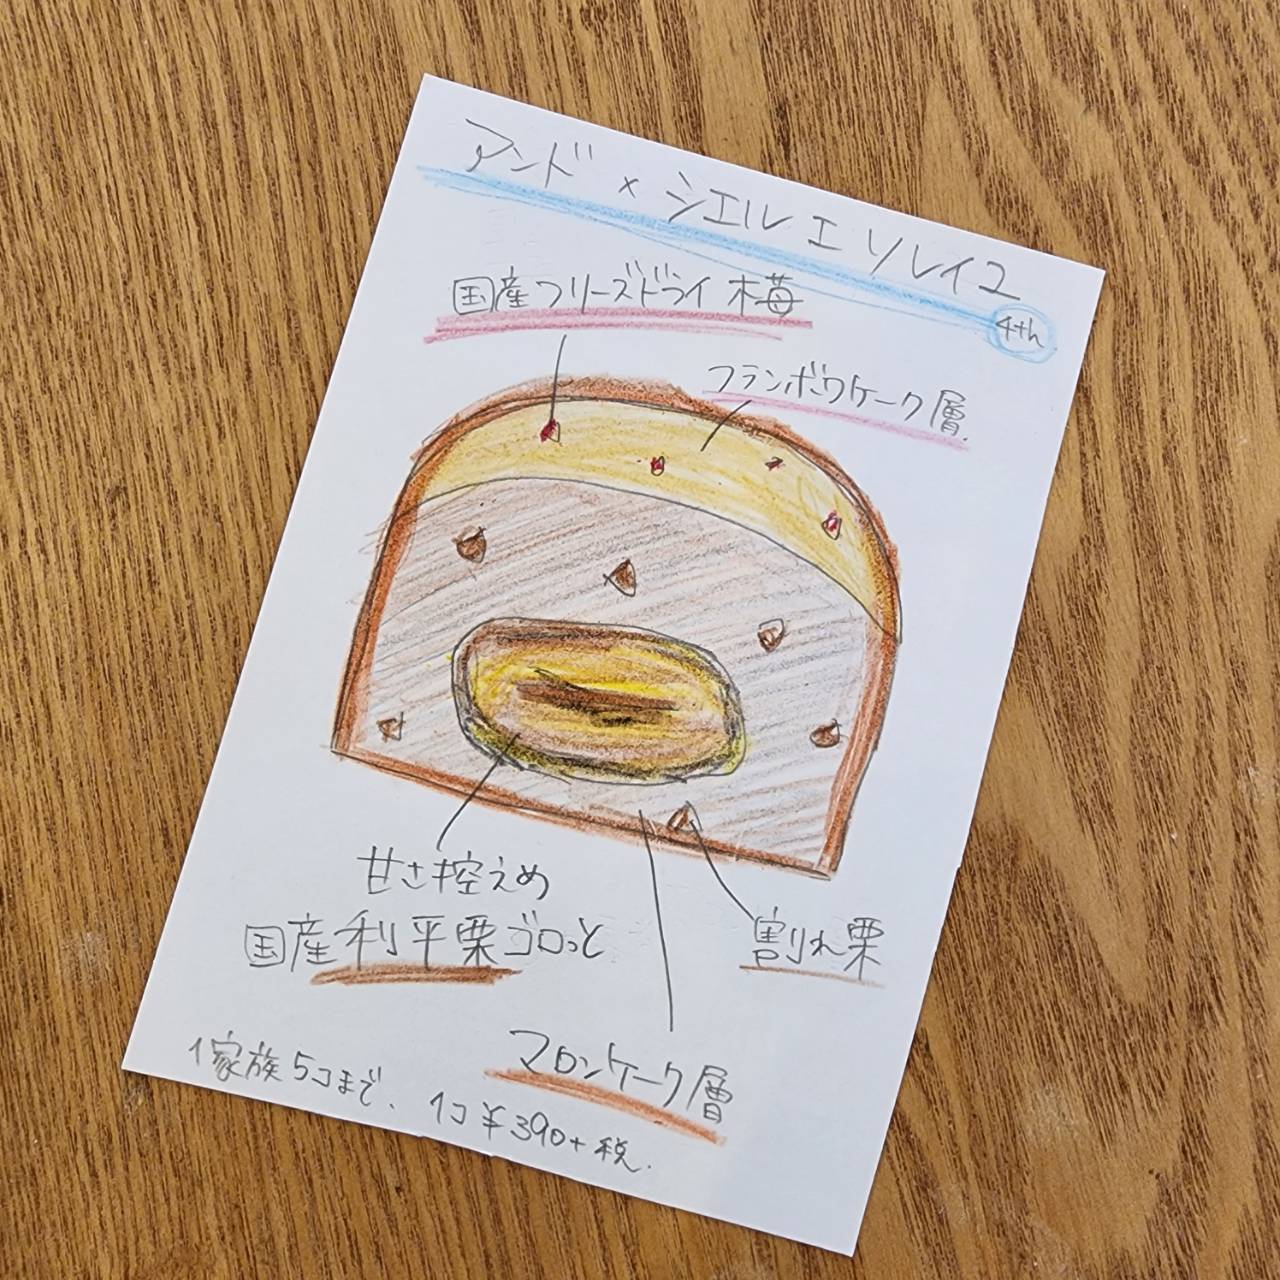 アンド × シエル エ ソレイユ
4th
国産フリーズドライ木苺
フランボワケーク層
甘さ控えめ
国産利平栗ゴロっと
割れ栗
マロンケーク層
1家族5コまで、1コ¥390+税.